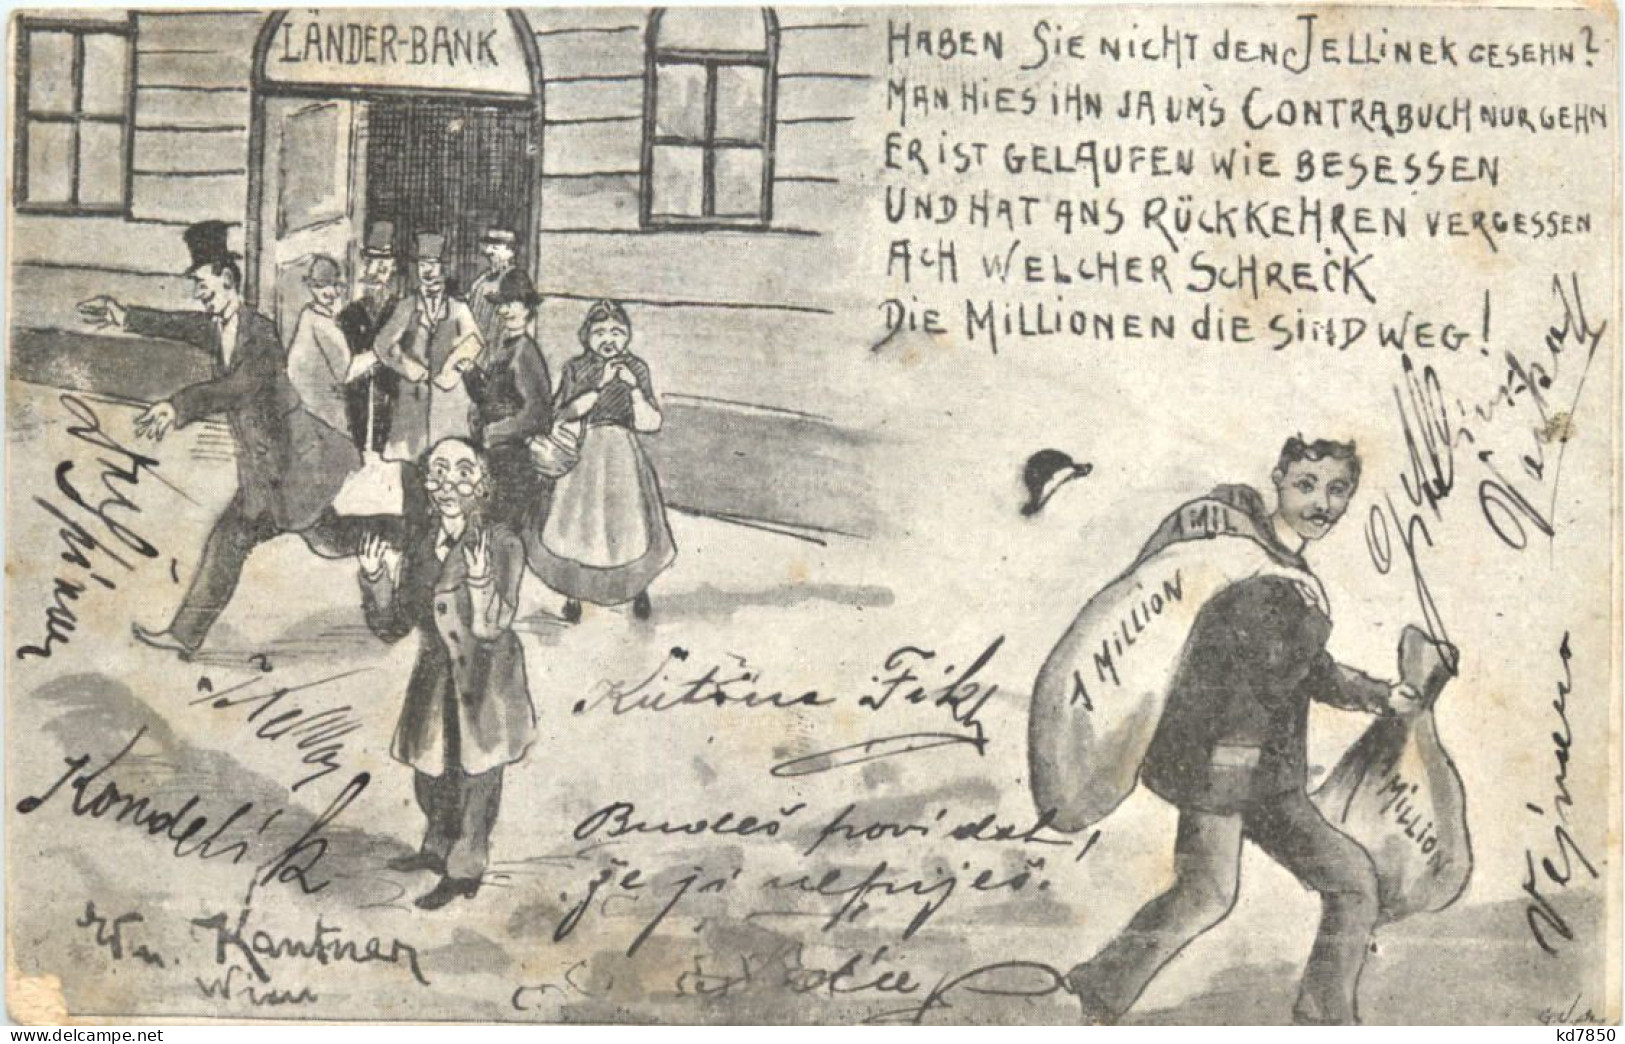 LÄNDER-BANK
HABEN SIE NICHT DEN JELLINEK GESEHN?
MAN HIES IHN JA UM'S CONTRABUCH NUR GEHN
ER IST GELAUFEN WIE BESESSEN
UND HAT ANS RÜCKKEHREN VERGESSEN
ACH WELCHER SCHRECK
DIE MILLIONEN DIE SIND WEG!
1 MIL
1 MILLION
MILLION
Kondelík
Kantner
Wien
Budeš povídat,
že ji nepiješ.
Vejvara
kd7850